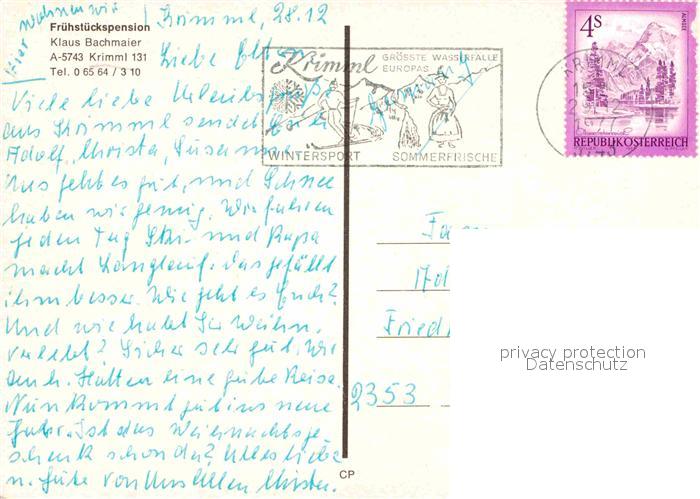 Hier wohnen wir
Frühstückspension
Klaus Bachmaier
A-5743 Krimml 131
Tel. 0 65 64 / 3 10
Krimml, 28.12
Liebe
Viele liebe Urlaubsgrüße
aus Krimml sendet Euch
Adolf, Christa, Susanne
Uns geht es gut, und Schnee
haben wir genug. Wir fahren
jeden Tag Ski und Papa
macht Langlauf. Das gefällt
ihm besser. Wie geht es Euch?
Und wie habt Ihr Weihn.
verlebt? Sicher sehr gut, wie
Hatten eine gute Reise.
Nun kommt gut ins neue
Jahr. Ist das Weihnachtsge-
schenk schon da? Alles liebe
u. gute von uns allen Christa.
Krimml
GRÖSSTE WASSERFÄLLE
EUROPAS
WINTERSPORT SOMMERFRISCHE
4S
ALMSEE
REPUBLIK ÖSTERREICH
KRIMML
5743
Germany
Fa
Ad
Fried
2353
privacy protection
Datenschutz
CP